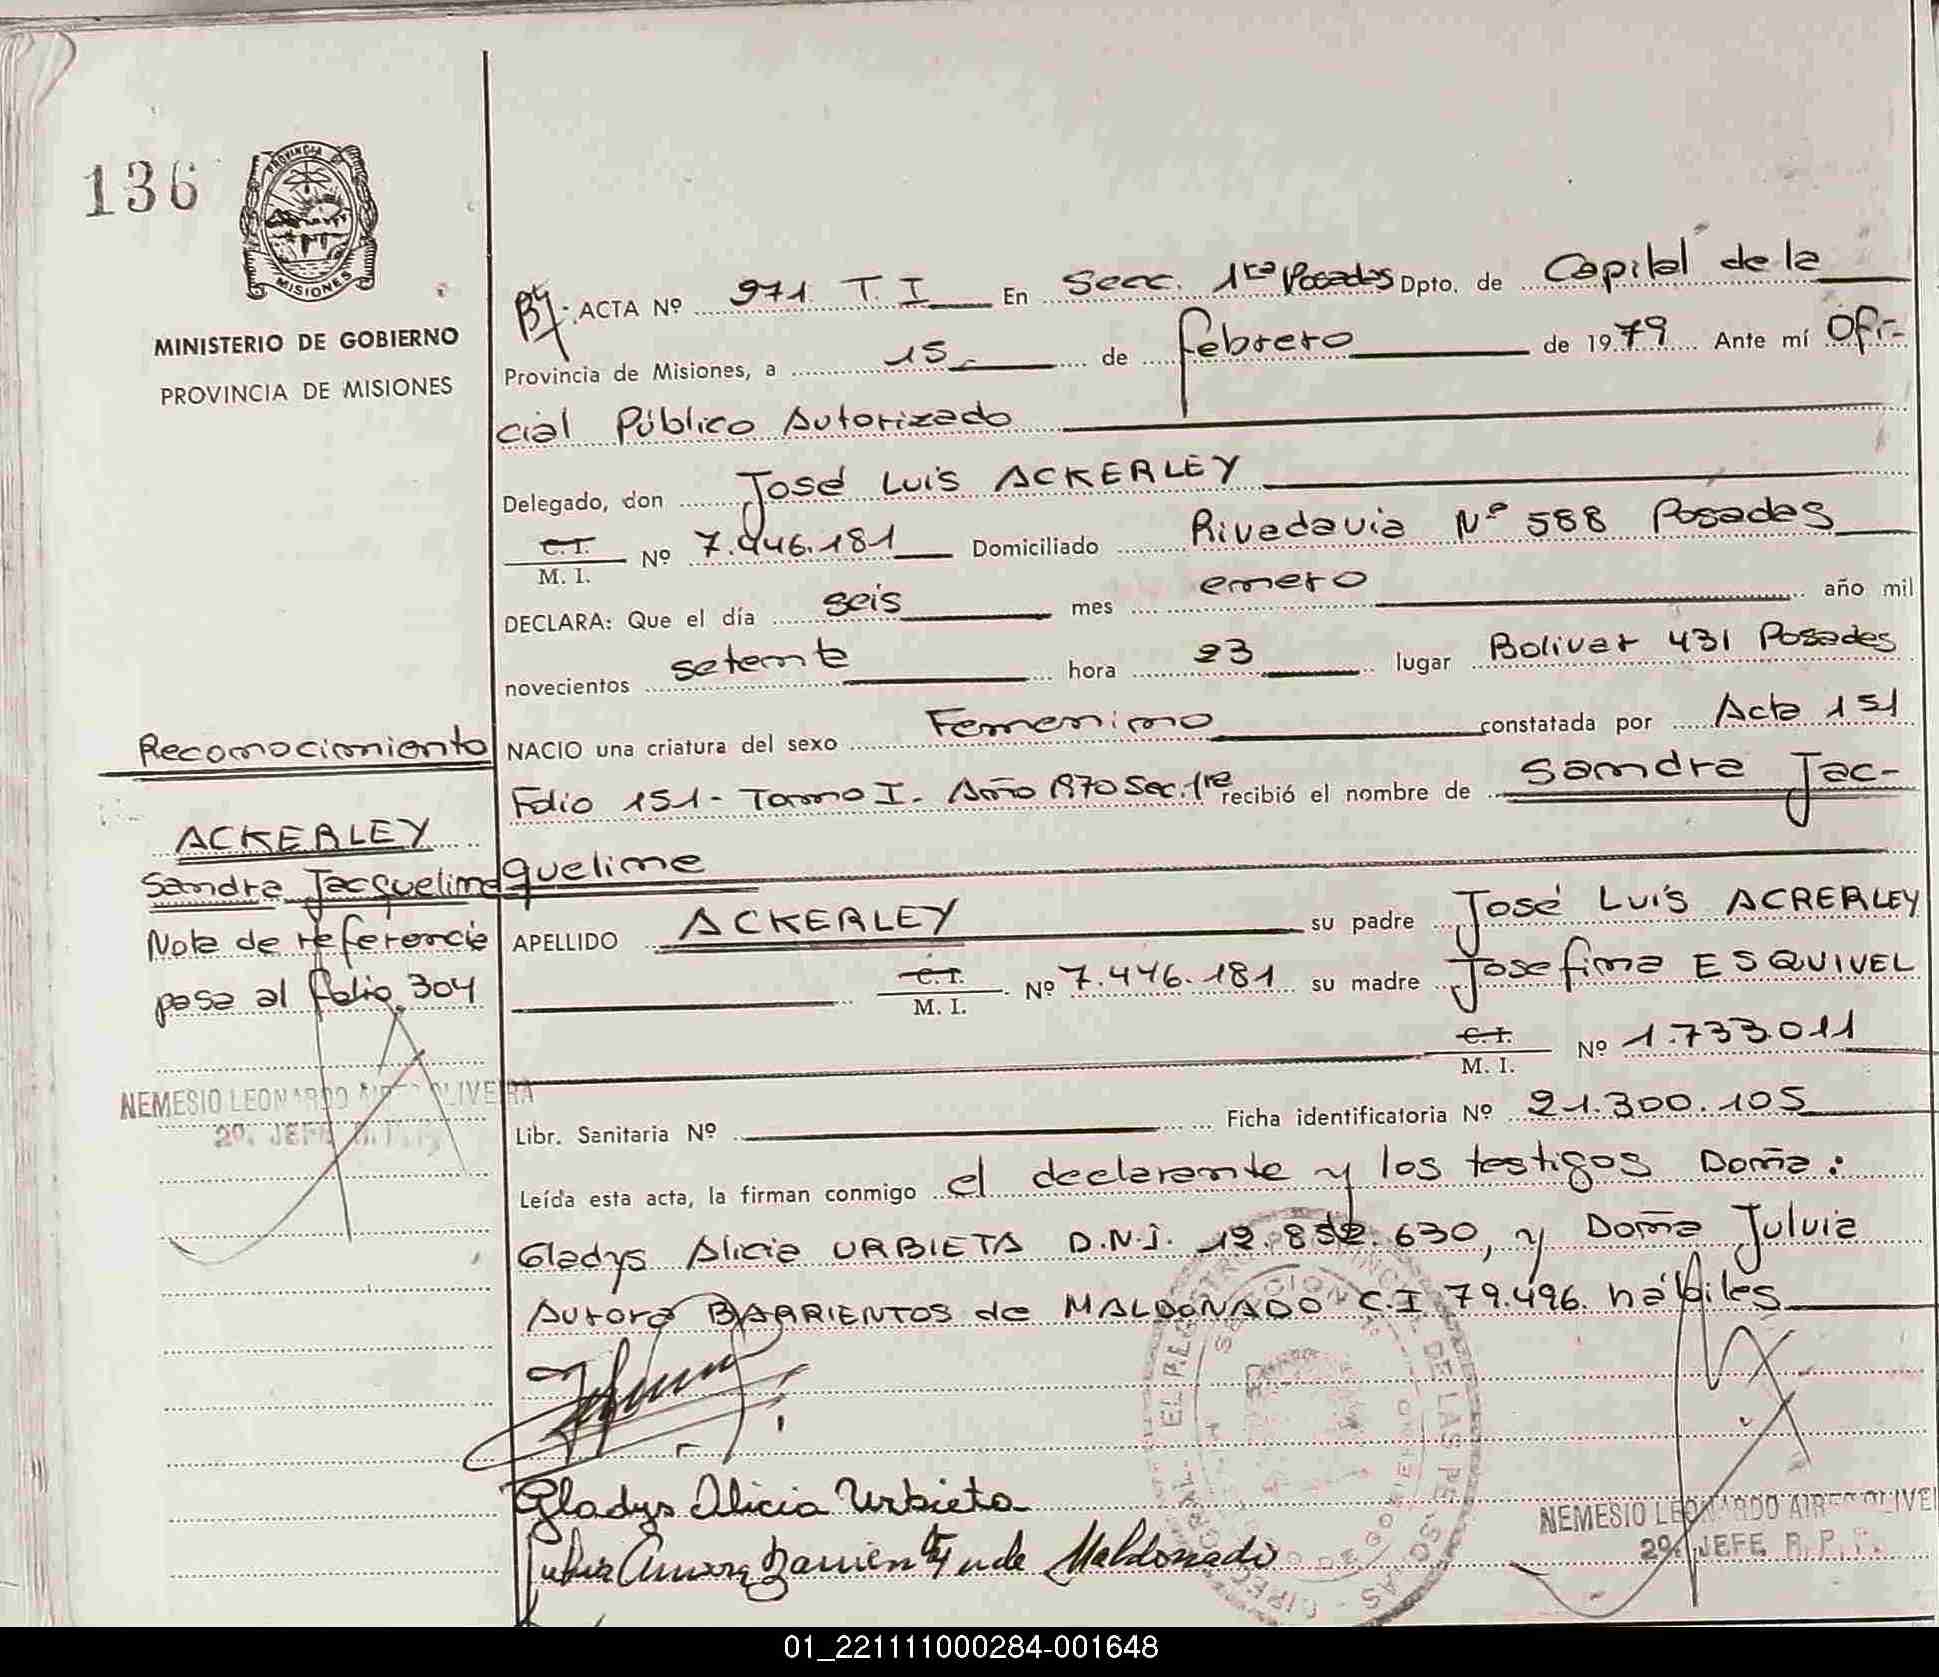 136
PROVINCIA DE
MISIONES
MINISTERIO DE GOBIERNO
PROVINCIA DE MISIONES
ACTA Nº 971 T. I En Secc. 1ra Posadas Dpto. de Capital de la
Provincia de Misiones, a 15 de febrero de 1979 Ante mí Ofi-
cial Público Autorizado
Delegado, don José Luis ACKERLEY
C.I.
M. I. Nº 7.446.181 Domiciliado Rivadavia Nº 588 Posadas
DECLARA: Que el día seis mes enero año mil
novecientos setenta hora 23 lugar Bolivar 431 Posadas
NACIO una criatura del sexo Femenino constatada por Acta 151
Folio 151- Tomo I. Año 1970 Sec. 1ra recibió el nombre de Sandra Jac-
queline
APELLIDO ACKERLEY su padre José Luis ACRERLEY
C.I.
M. I. Nº 7.446.181 su madre Josefina ESQUIVEL
C.I.
M. I. Nº 1.733.011
Libr. Sanitaria Nº Ficha identificatoria Nº 21.300.105
Leída esta acta, la firman conmigo el declarante y los testigos Doña:
Gladys Alicia URBIETA D.N.I. 12.852.630, y Doña Julvia
Aurora BARRIENTOS de MALDONADO C.I 79.496. hábiles
Gladys Alicia Urbieta
de Maldonado
Reconocimiento
ACKERLEY
Sandra Jacqueline
Nota de referencia
pasa al folio 304
NEMESIO LEONARDO OLIVEIRA
2º. JEFE
NEMESIO LEONARDO AIRES OLIVEI
2º. JEFE R. P. P.
DE LAS PERSONAS
SECCION 1
01_221111000284-001648